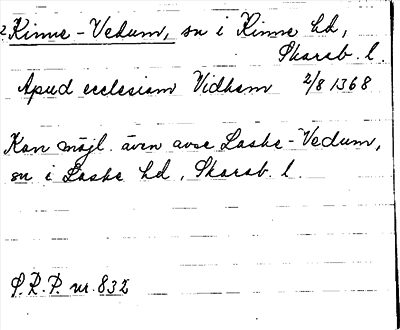 ? Kinne-Vedum, sn i Kinne hd,
Skarab. l.
Apud ecclesiam Vidhem 2/8 1368
Kan möjl. även avse Laske-Vedum,
sn i Laske hd, Skarab. l.
S.R.P. nr. 832